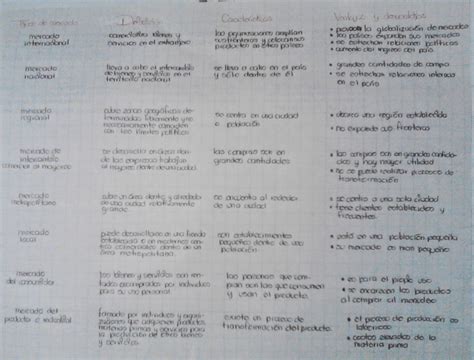 Tipos de mercado Definición Características Ventajas y desventajas
mercado internacional
comercializa bienes y servicios en el extranjero
las organizaciones amplían
productos en otros países
la globalización de mercados
los países expanden sus mercados
se estrechan relaciones políticas
aumento del ingreso del país
mercado nacional
lleva a cabo el intercambio de bienes y servicios en el territorio nacional
se lleva a cabo en el país y solo dentro de él
grandes cantidades de campo
se estrechan relaciones internas en el país
mercado regional
cubre zonas geográficas determinadas libremente y no necesariamente coinciden con los límites políticos
se centra en una ciudad o población
abarca una región establecida
no expande sus fronteras
mercado de intercambio comercial al mayoreo
se desarrolla en áreas donde las empresas trabajan al mayoreo dentro de una ciudad
las compras son en grandes cantidades
las compras son en grandes cantidades y hay mayor utilidad
no se puede realizar procesos de transformación
mercado metropolitano
cubre un área dentro y alrededor de una ciudad relativamente grande
se encuentra al rededor de una ciudad
se centra a una sola ciudad
tiene clientes establecidos y frecuentes
mercado local
puede desarrollarse en una tienda establecida o en modernos centros comerciales dentro de un área metropolitana
son establecimientos pequeños dentro de una población
está en una población pequeña
su mercado es más pequeño
mercado del consumidor
los bienes y servicios son rentados o comprados por individuos para su uso personal
las personas que compran son las que consumen y usan el producto
es para el propio uso
se encarecen los productos al comprar al menudeo
mercado del producto o industrial
formado por individuos y organizaciones que adquieren productos, materias primas y servicios para la producción de otros bienes y servicios
existe un proceso de transformación del producto
el proceso de producción es
costos elevados de la materia prima